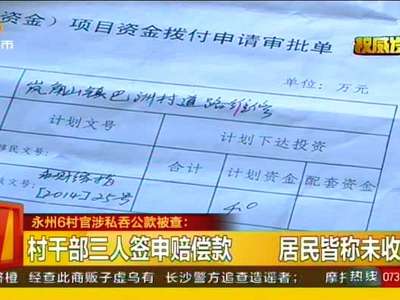 资金）项目资金拨付申请审批单
单位：万元
岚角山镇巴洲村道路维修
计划文号
计划下达投资
合计
计划资金
配套资金
民文号：
[2014]25号
永州6村官涉私吞公款被查：
村干部三人签申赔偿款 居民皆称未收
挤橙 经查此商贩子虚乌有 长沙警方追查造谣者； 摩托
热线 073